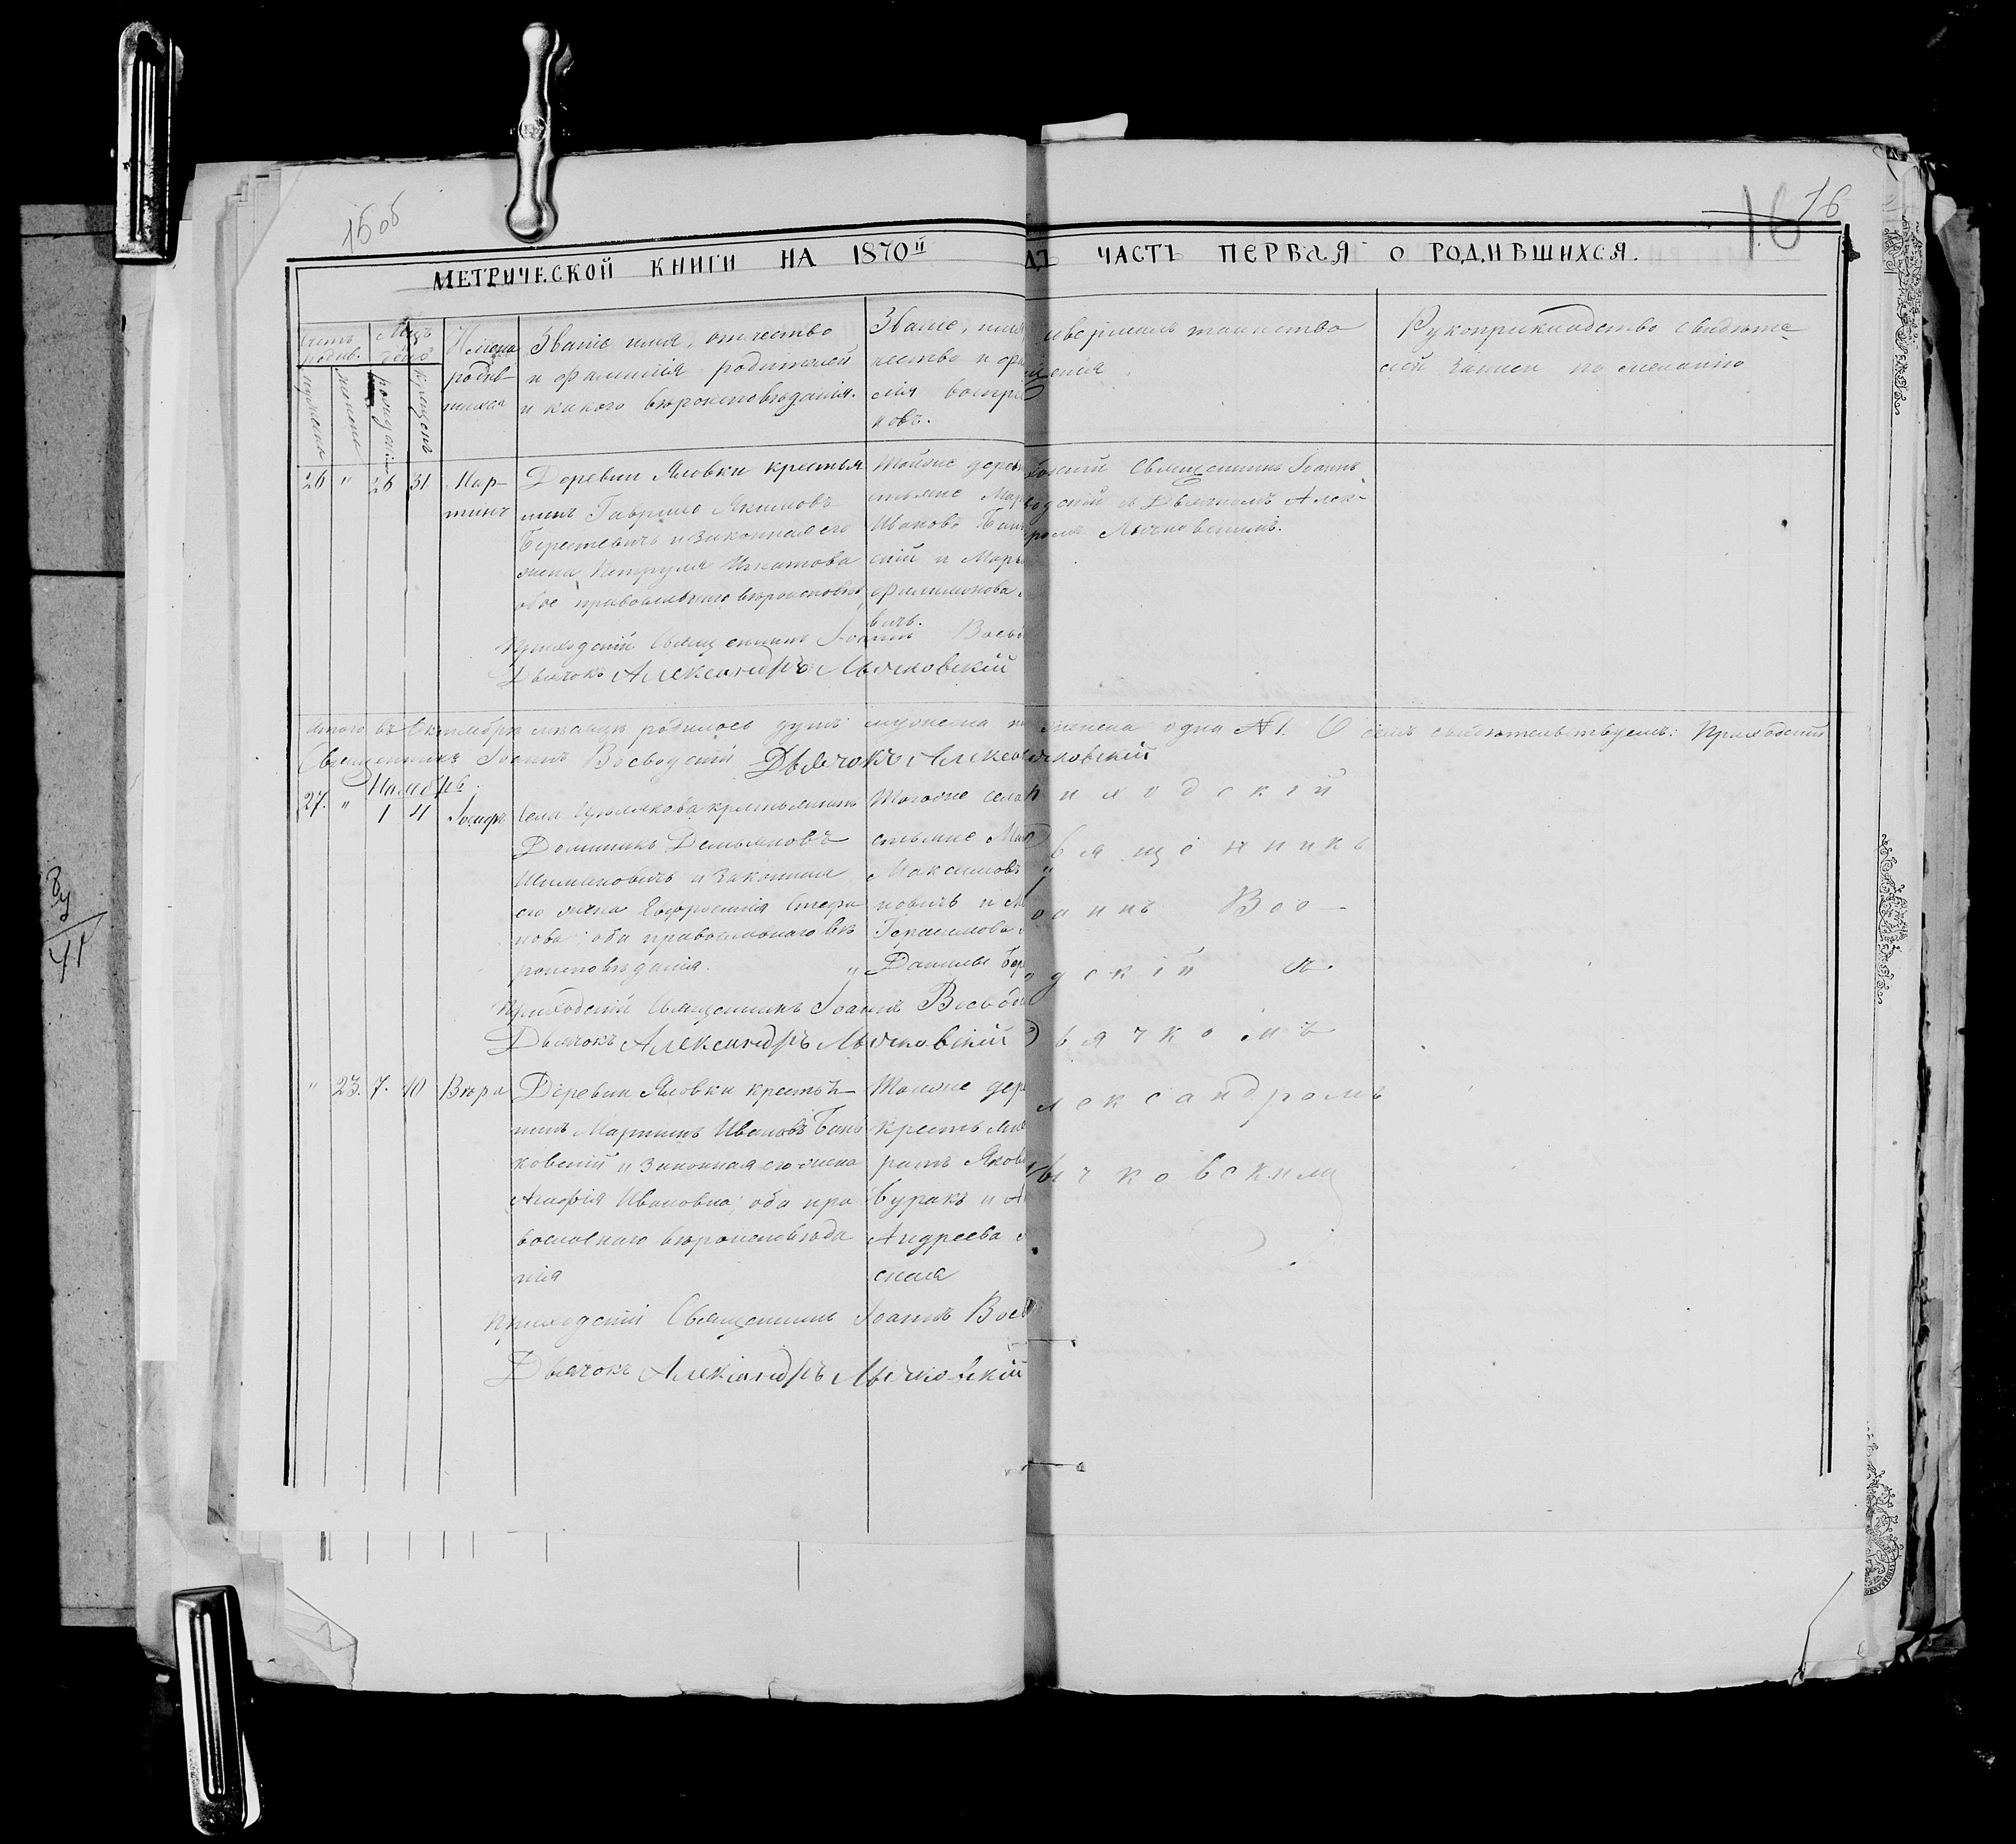 15об
16
16
МЕТРИЧЕСКОЙ КНИГИ НА 1870й
ДЪ ЧАСТЬ ПЕРВАЯ О РОДИВШИХСЯ.
Счетъ родив.
мужеска
женска
Мцъ
рожденія
крещенія
Имена
родив-
шихся
Званіе имя, отчество
и фамилія родителей
и какого вѣроисповѣданія.
Званіе, имя,
чество и фа
лія воспріе
ковъ.
совершалъ таинство
щенія
Рукоприкладство свидѣте-
лей записи по желанію
26 " 26 31
Мар-
тинъ
Деревни Яловки крестья
нинъ Гаврило Якимовъ
Берестевичъ и законная его
жена Петруля Игнатова
обое православнаго вѣроисповѣ
Тойже дерев
стьяне Мар
Иванова Бань
скій и Марь
Филимонова
вичъ.
ходскій Священникъ Іоаннъ
водскій съ Дьячкомъ Алек-
Лычковскимъ.
Приходскій Священникъ Іоаннъ Воево
Дьячокъ Александръ Лычковскій
Итого въ Октябрѣ мѣсяцѣ родилось душъ мужеска женска одна №1. О семъ свидѣтельствуемъ: Приходскій
Священникъ Іоаннъ Воеводскій Дьячокъ Алекса
чковскій
Ноябрь.
27. " 1 4
Іосифъ
Села крестьянинъ
Доминикъ Демьяновъ
Шимановичъ и законная
его жена Евфросинія Стефа
нова; оба православнаго вѣ
роисповѣданія.
Тогоже села
стьяне
Максимовъ
новичъ и М
Герасимова
Данилы Бер
и х о д с к і й
в я щ е н н и к ъ
о а н н ъ В о е-
о д с к і й съ
ь я ч к о м ъ
л е к с а н д р о м ъ
ы ч к о в с к и м
Приходскій Священникъ Іоаннъ Воевод
Дьячокъ Александръ Лычковскій
" 23. 7. 10
Вѣра
Деревни Яловки кресть-
нинъ Мартинъ Ивановъ Бань
ковскій и законная его жена
Агафія Ивановна; оба пра
вославнаго вѣроисповѣда
нія
Тойже дер
крестьян
Яков
вуракъ и А
Андреева
ская
Приходскій Священникъ Іоаннъ Воев
Дьячокъ Александръ Лычковскій